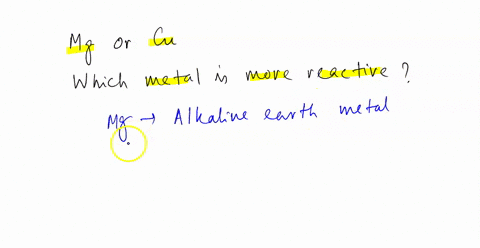 Mg or Cu
Which metal is more reactive ?
Mg → Alkaline earth metal